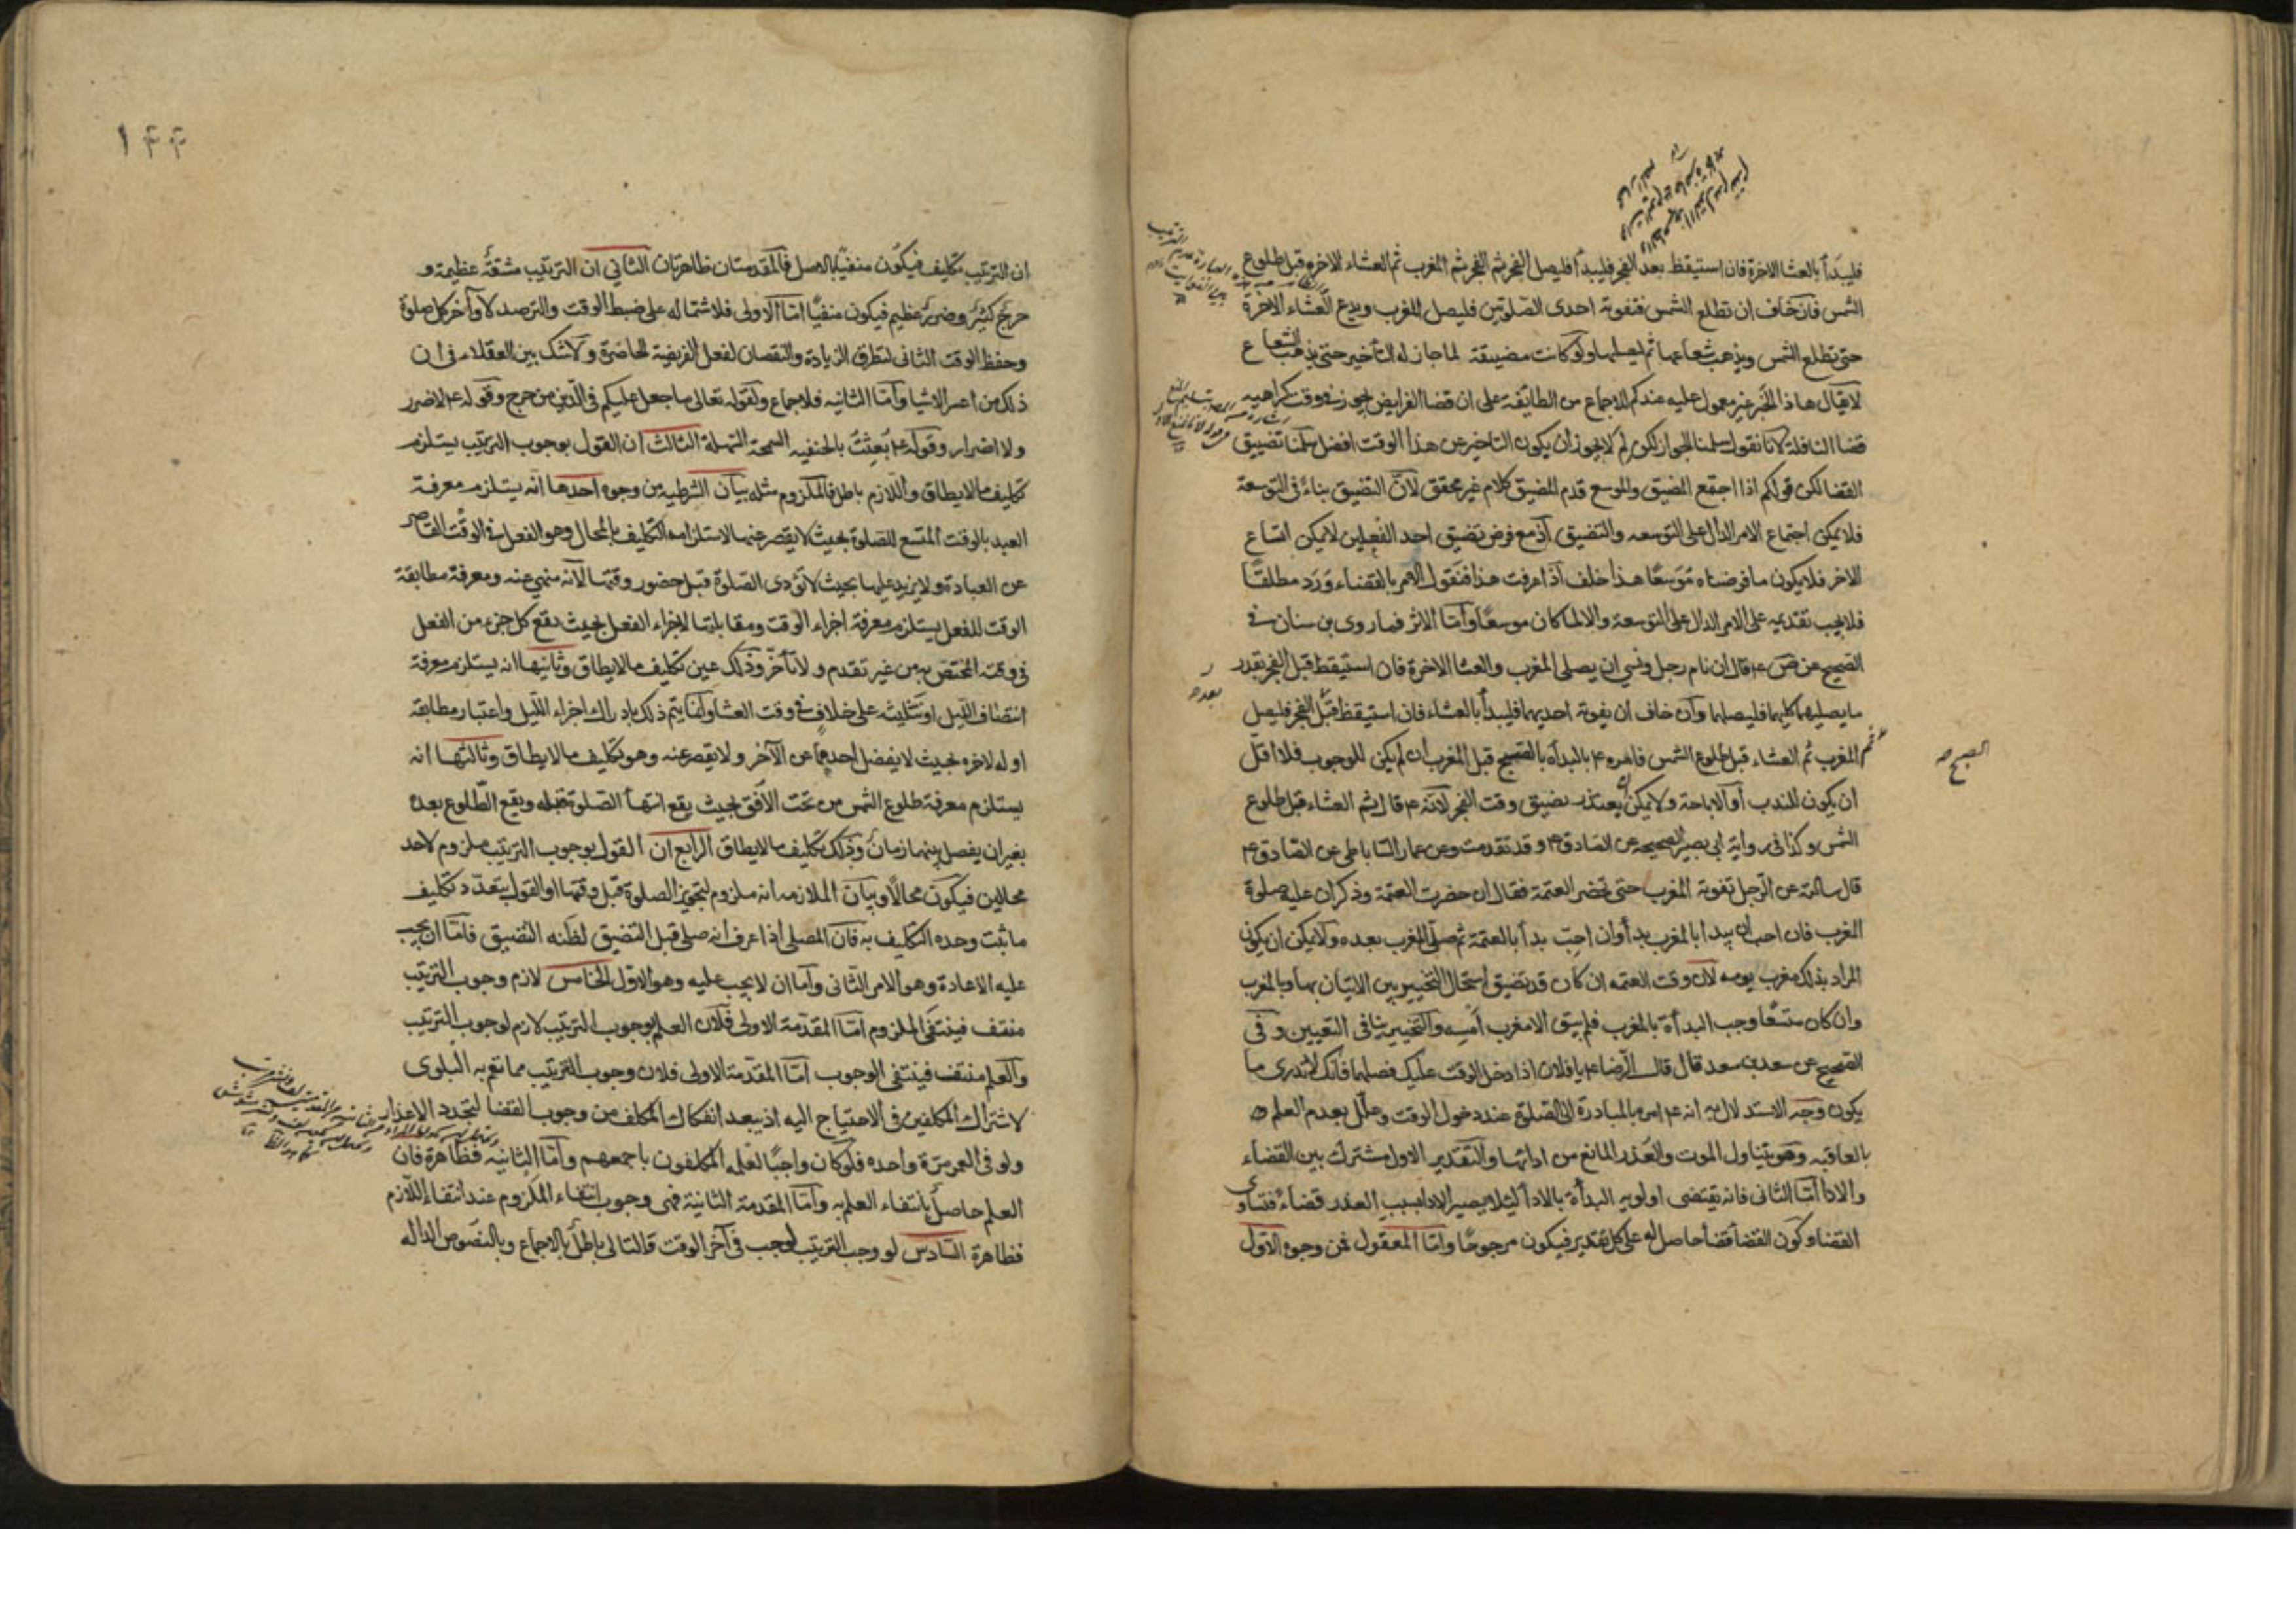 فليبدأ بالعشا الاخرة فان استيقظ بعد الفجر فليبدأ فليصل الفجر ثم المغرب ثم العشاء الاخرة قبل طلوع
الشمس فان خاف ان تطلع الشمس فتفوته احدى الصلوتين فليصل المغرب ويدع العشاء الاخرة
حتى تطلع الشمس ويذهب شعاعها ثم ليصلها ولو كانت مضيقة لما جاز له التأخير حتى يذهب الشعاع
لا يقال هذا الخبر غير معمول عليه عندكم للاجماع من الطائفة على ان قضا الفرايض يجوز في وقت كراهيه
قضا النافلة لانا نقول سلمنا الجواز لكن لم لا يجوز ان يكون التاخير عن هذا الوقت افضل سلمنا تضييق
القضا لكن قولكم اذا اجتمع المضيق والموسع قدم المضيق كلام غير محقق لان التضيق ينافي التوسعة
فلا يمكن اجتماع الامر الدال على التوسعه والتضيق اذ مع فرض تضيق احد الفعلين لا يمكن اتساع
الاخر فلا يكون ما فرضناه موسعًا هذا خلف اذا عرفت هذا فنقول الامر بالقضاء ورد مطلقًا
فلا يجب تقديمه على الامر الدال على التوسعة والا لما كان موسعًا واما الاثر فما روى بن سنان في
الصحيح عن ص ع قال ان نام رجل ونسي ان يصلى المغرب والعشا الاخرة فان استيقظ قبل الفجر بقدر
ما يصليهما كليهما فليصلهما وان خاف ان يفوته احديهما فليبدأ بالعشاء فان استيقظ قبل الفجر فليصل
بعد
الصبح
ثم المغرب ثم العشاء قبل طلوع الشمس فامره ع بالبدأه بالصبح قبل المغرب ان لم يكن للوجوب فلا اقل
ان يكون للندب أو الاباحة ولا يمكن ان يعتذر بضيق وقت الفجر لانه ع قال ثم العشاء قبل طلوع
الشمس وكذا في رواية ابى بصير الصحيحه عن الصادق ع وقد تقدمت وعن عمار الساباطى عن الصادق ع
قال سالته عن الرجل تفوته المغرب حتى تحضر العتمة فقال ان حضرت العتمة وذكر ان عليه صلوة
المغرب فان احب ان يبدا بالمغرب بدأ وان احب بدأ بالعتمة ثم صلى المغرب بعده ولا يمكن ان يكون
المراد بذلك مغرب يومه لان وقت العتمه ان كان قد تضيق استحال التخيير بين الاتيان بها وبالمغرب
وان كان متسعًا وجب البدأة بالمغرب فلم يبق الا مغرب امسه والتخيير ينافى التعيين وفى
الصحيح عن سعد بن سعد قال قال الرضا ع يا فلان اذا دخل الوقت عليك فصلها فانك لا تدرى ما
يكون وجه الاستدلال به انه ع امر بالمبادرة الى الصلوة عند دخول الوقت وعلل بعدم العلم
بالعاقبه وهو يتناول الموت والعذر المانع من ادائها والتقدير الاول مشترك بين القضاء
والادا اما الثانى فانه يقتضى اولويه البدأة بالادا ليلا يصير الادا بسبب العذر قضاء فتساوى
القضا وكون القضا قضا حاصل له على كل تقدير فيكون مرجوحًا واما المعقول فمن وجوه الاول
١٤٤
ان الترتيب تكليف فيكون منفيًا بالاصل فالمقدمتان ظاهرتان الثاني ان الترتيب مشقة عظيمة و
حرج كثير وضرر عظيم فيكون منفيًا اما الاولى فلاشتماله على ضبط الوقت والترصد لاول وآخر كل صلوة
وحفظ الوقت الثانى لتطرق الزيادة والنقصان لفعل الفريضة الحاضرة ولا شك بين العقلاء فى ان
ذلك من اعسر الاشيا وامّا الثانيه فللاجماع ولقوله تعالى ما جعل عليكم فى الدين من حرج وقوله ع لا ضرر
ولا اضرار وقوله ع بُعِثتُ بالحنفيه السمحة السهلة الثالث ان القول بوجوب الترتيب يستلزم
تكليف ما لا يطاق واللازم باطل فالملزوم مثله بيان الشرطيه من وجوه احدها انه يستلزم معرفة
العبد بالوقت المتسع للصلوة بحيث لا يقصر عنها لاستلزامه التكليف بالمحال وهو الفعل في الوقت القاصر
عن العبادة ولا يزيد عليها بحيث لا تؤدى الصلوة قبل حضور وقتها لانه منهي عنه ومعرفة مطابقة
الوقت للفعل يستلزم معرفة اجزاء الوقت ومقابلتها لاجزاء الفعل بحيث يقع كل جزء من الفعل
فى وقته المختص به من غير تقدم ولا تأخر وذلك عين تكليف ما لا يطاق وثانيها انه يستلزم معرفة
انتصاف الليل او تثليثه على خلاف في وقت العشا وانما يتم ذلك بادراك اجزاء الليل واعتبار مطابقة
اوله لاخره بحيث لا يفضل احدهما عن الآخر ولا يقصر عنه وهو تكليف ما لا يطاق وثالثها انه
يستلزم معرفة طلوع الشمس من تحت الأفق بحيث يقع انتهاء الصلوة قبله ويقع الطلوع بعده
بغير ان يفصل بينهما زمان وذلك تكليف ما لا يطاق الرابع ان القول بوجوب الترتيب ملزوم لاحد
محالين فيكون محالًا وبيان الملازمه انه ملزوم لتجويز الصلوة قبل وقتها او القول بتعدد تكليف
ما ثبت وحده التكليف به فان المصلى اذا عرف انه صلى قبل التضيق لظنه التضيق فاما ان يجب
عليه الاعادة وهو الامر الثانى واما ان لا يجب عليه وهو الاول الخامس لازم وجوب الترتيب
منتف فينتفى الملزوم امّا المقدّمة الاولى فلان العلم بوجوب الترتيب لازم لوجوب الترتيب
والعلم منتف فينتفى الوجوب امّا المقدّمة الاولى فلان وجوب الترتيب مما تعم به البلوى
لاشتراك المكلفين فى الاحتياج اليه اذ يبعد انفكاك المكلف من وجوب القضا لتجدد الاعذار
ولو فى العمر مرّة واحده فلو كان واجبًا لعلمه المكلفون باجمعهم وامّا الثانيه فظاهرة فان
العلم حاصل بانتفاء العلم به وامّا المقدمة الثانية فهى وجوب انتفاء الملزوم عند انتفاء اللازم
فظاهرة السّادس لو وجب الترتيب لوجب فى آخر الوقت فالتالى باطل بالاجماع وبالنصوص الداله